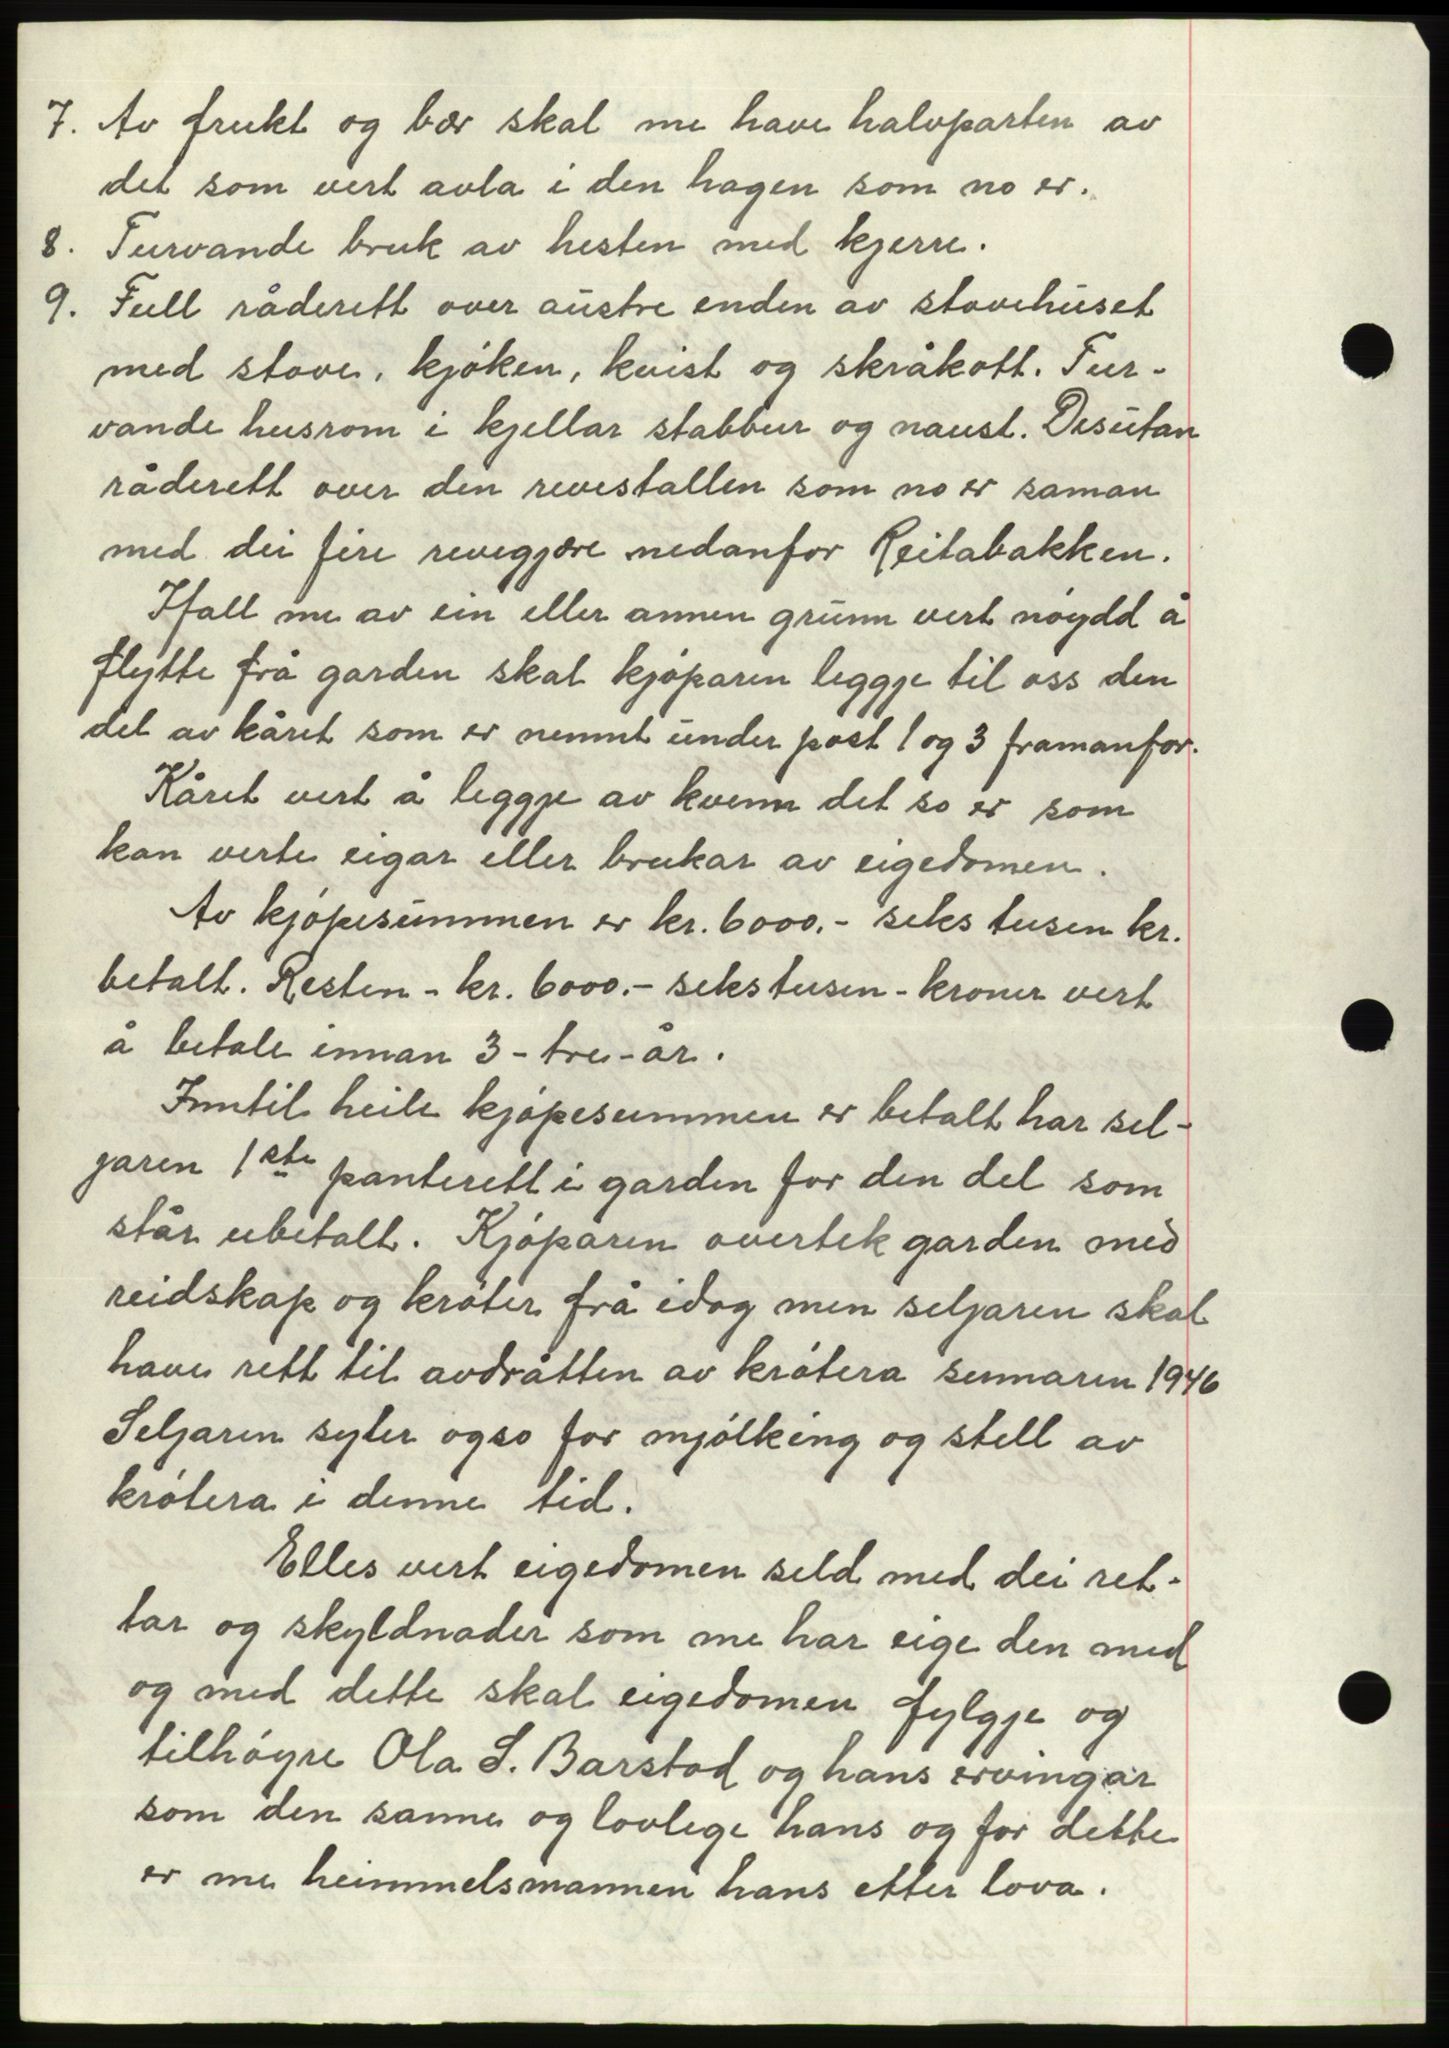 7. Av frukt og bær skal me have halvparten av
det som vert avla i den hagen som no er.
8. Turvande bruk av hesten med kjerre.
9. Full råderett over austre enden av stovehuset
med stove, kjøken, kvist og skråkott. Tur-
vande husrom i kjellar stabbur og naust. Desutan
råderett over den revestallen som no er saman
med dei fire revegjære nedanfor Reitabakken.
Ifall me av ein eller annen grunn vert nøydd å
flytte frå garden skal kjøparen leggje til oss den
del av kåret som er nemnt under post 1 og 3 framanfor.
Kåret vert å leggje av kvenn det so er som
kan verte eigar eller brukar av eigedomen.
Av kjøpesummen er kr. 6000.- seks tusen kr.
betalt. Resten - kr. 6000.- sekstusen - kroner vert
å betale innan 3 - tre - år.
Inntil heile kjøpesummen er betalt har sel-
jaren 1ste panterett i garden for den del som
står ubetalt. Kjøparen overtek garden med
reidskap og krøter frå idag men seljaren skal
have rett til avdråtten av krøtera sumaren 1946
Seljaren syter ogso for mjølking og stell av
krøtera i denne tid.
Elles vert eigedomen seld med dei ret-
tar og skyldnader som me har eige den med
og med dette skal eigedomen fylgje og
tilhøyre Ola S. Barstad og hans ervingar
som den sanne og lovlege hans og for dette
er me heimmelsmannen hans etter lova.